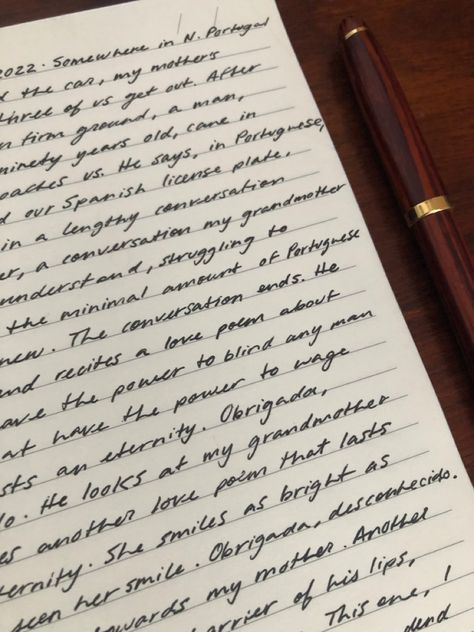 2022. Somewhere in N. Portugal
the car, my mother's
three of us get out. After
firm ground, a man,
ninety years old, cane in
oaches us. He says, in Portuguese,
our Spanish license plate.
in a lengthy conversation
er, a conversation my grandmother
understand, struggling to
the minimal amount of Portuguese
new. The conversation ends. He
and recites a love poem about
ave the power to blind any man
at have the power to wage
sts an eternity. Obrigada,
do. He looks at my grandmother
es another love poem that lasts
ternity. She smiles as bright as
seen her smile. Obrigada, desconhecido.
towards my mother. Another
arrier of his lips,
This one, I